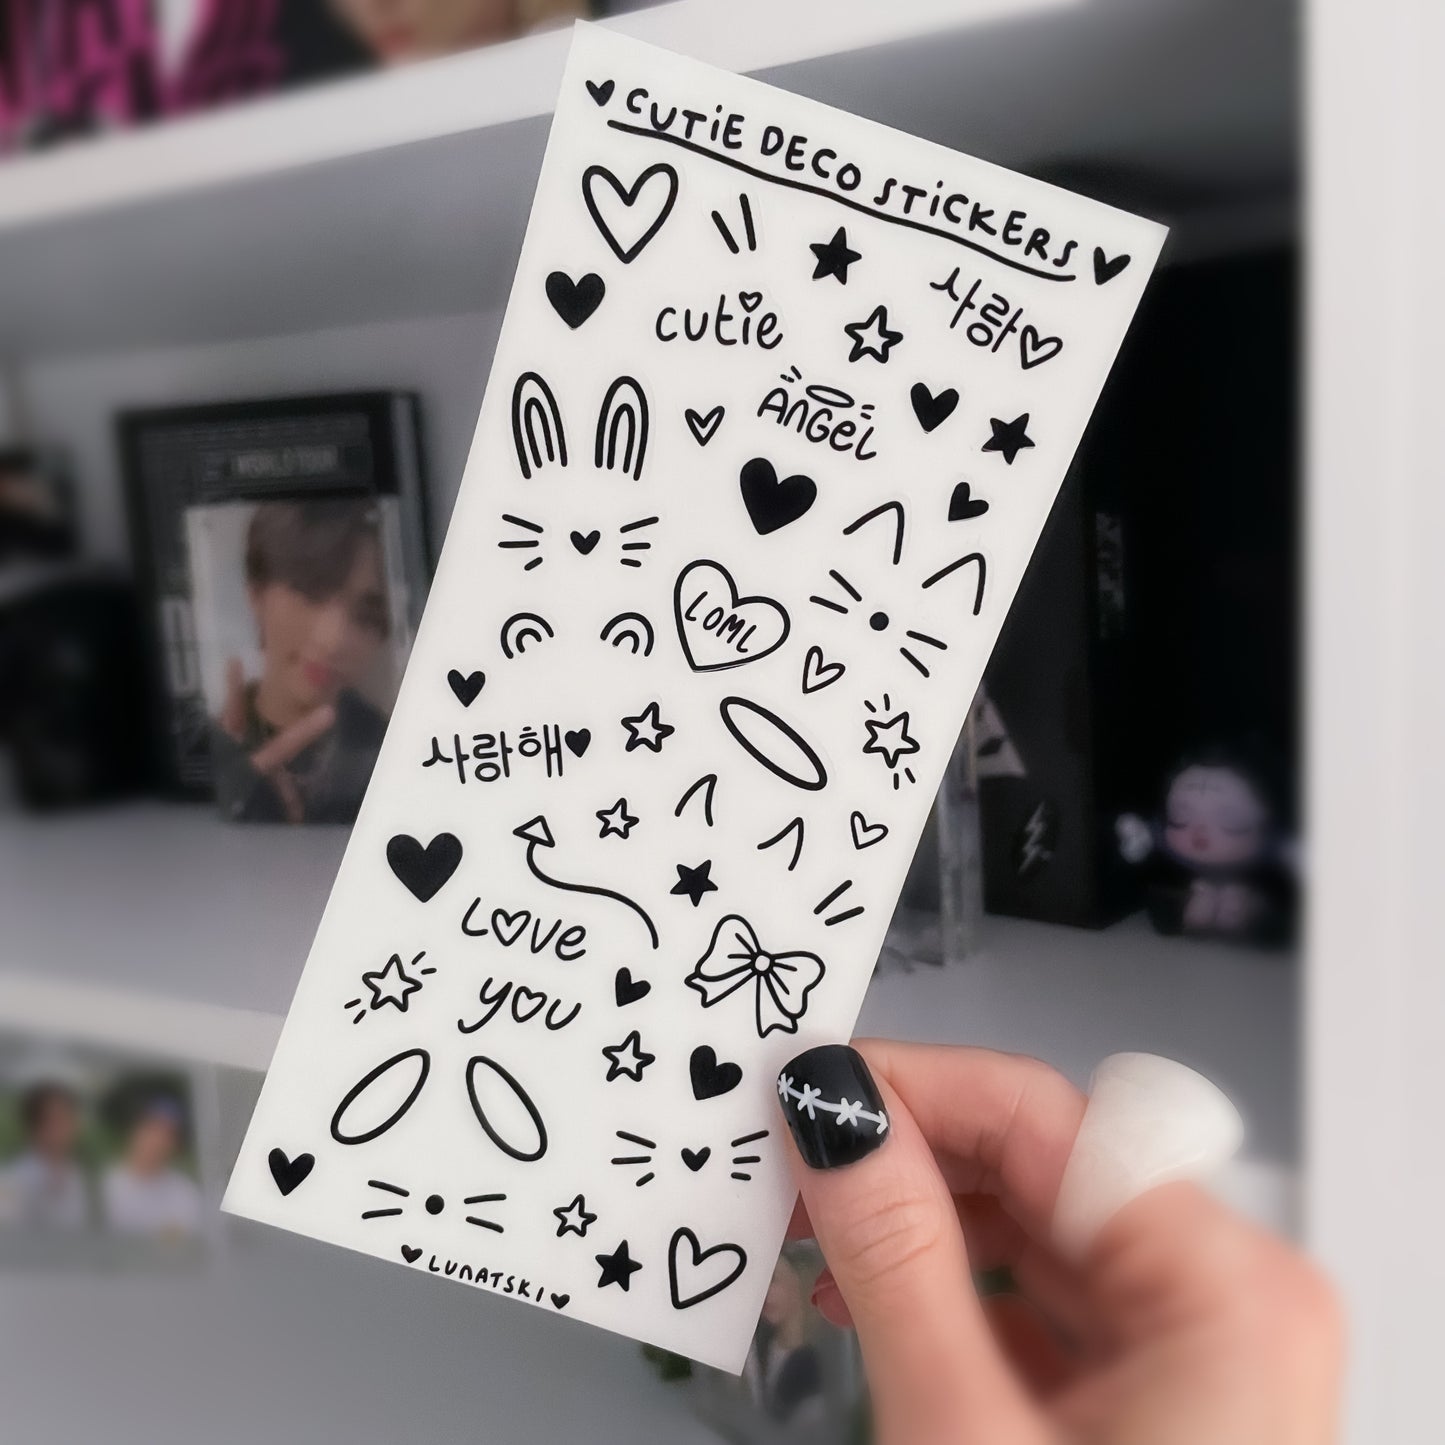 CUTiE DECO STiCKERS
cutie
사랑
ANGEL
LOML
사랑해
LOVE
YOU
LUNATSKI